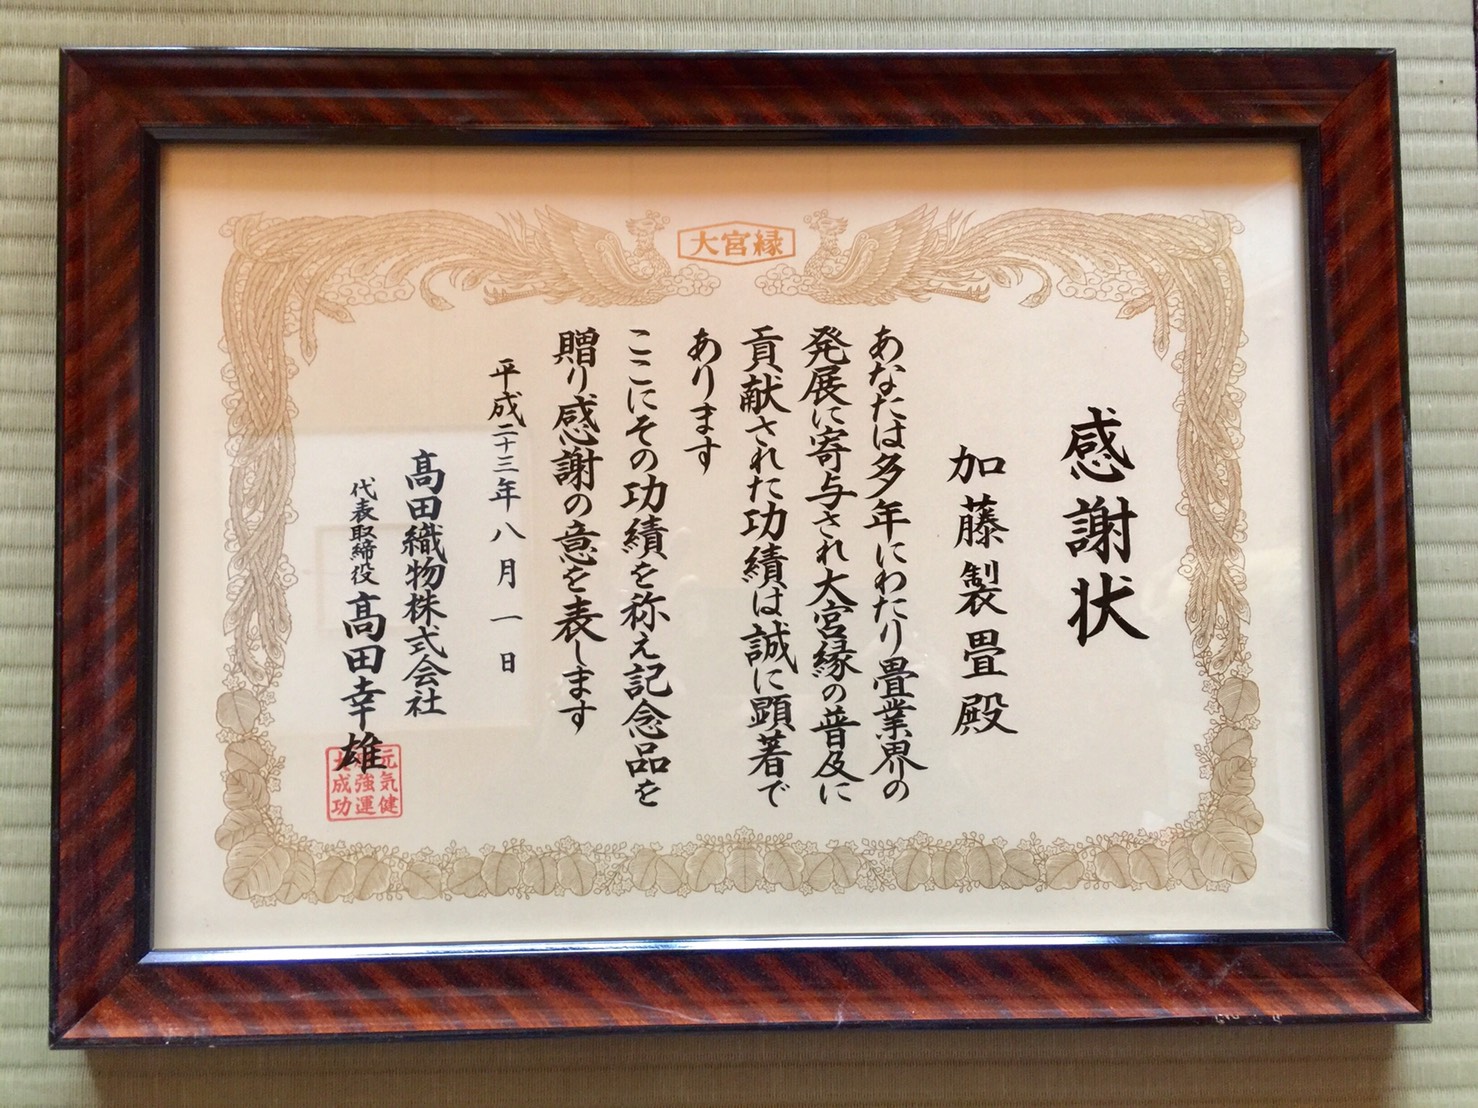 大宮縁
感謝状
加藤製畳殿
あなたは多年にわたり畳業界の
発展に寄与され大宮縁の普及に
貢献された功績は誠に顕著で
あります
ここにその功績を称え記念品を
贈り感謝の意を表します
平成二十三年八月一日
髙田織物株式会社
代表取締役 髙田幸雄
元気健
強運
大成功